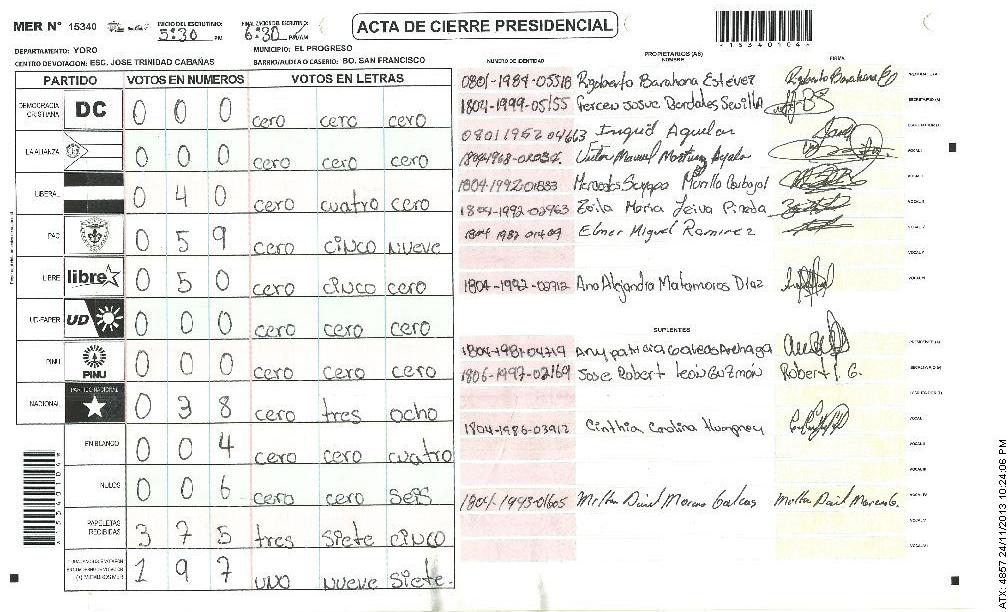 MER N° 15340
INICIO DEL ESCRUTINIO: 5:30 PM
FINALIZACION DEL ESCRUTINIO: 6:30 PM/AM
ACTA DE CIERRE PRESIDENCIAL
15340104
DEPARTAMENTO: YORO
MUNICIPIO: EL PROGRESO
CENTRO DE VOTACION: ESC. JOSE TRINIDAD CABAÑAS
BARRIO/ALDEA O CASERIO: BO. SAN FRANCISCO
PARTIDO VOTOS EN NUMEROS VOTOS EN LETRAS
DEMOCRACIA CRISTIANA DC 0 0 0 cero cero cero
LA ALIANZA 0 0 0 cero cero cero
LIBERAL 0 4 0 cero cuatro cero
PAC 0 5 9 cero cinco nueve
LIBRE libre 0 5 0 cero cinco cero
UD-FAPER UD 0 0 0 cero cero cero
PINU PINU 0 0 0 cero cero cero
NACIONAL PARTIDO NACIONAL 0 3 8 cero tres ocho
EN BLANCO 0 0 4 cero cero cuatro
NULOS 0 0 6 cero cero seis
PAPELETAS RECIBIDAS 3 7 5 tres siete cinco
1 9 7 uno nueve siete.
NUMERO DE IDENTIDAD
PROPIETARIOS (AS)
NOMBRE
FIRMA
0801-1984-05518 Rigoberto Barahona Estévez
1804-1999-05155 Josue Bordales Sevilla
0801 1952 04663 Ingrid Aguilar
Victor Manuel Martinez Ayala
1804-1992-01883 Mercedes Murillo Carbajal
1804-1992-02963 Zoila Maria Leiva Pineda
1804 1987 01409 Elmer Miguel Ramirez
1804-1992-02712 Ana Alejandra Matamoros Diaz
SUPLENTES
1804-1981-04719 Any patricia
1806-1997-02169 Jose Robert León Guzmán Robert J. G.
1804-1986-03912 Cinthia Carolina Humphrey
1804-1993-01605 Melton David Moreno Galeas
ATX: 4857 24/11/2013 10:24:06 PM